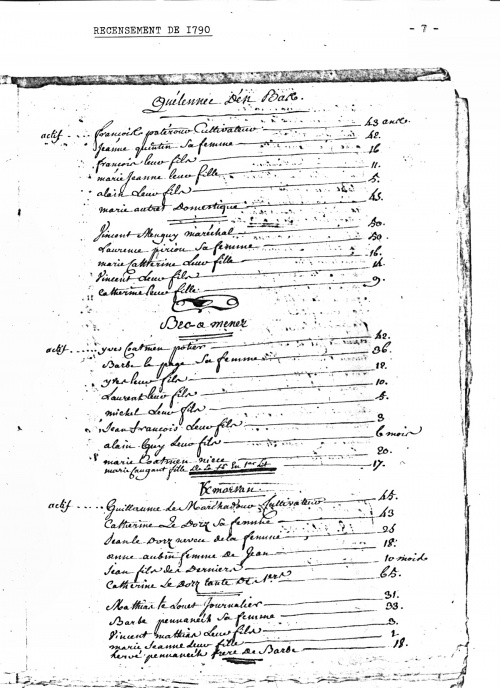 RECENSEMENT DE 1790 - 7 -
Quélennec Dén Bac.
actif françois patérour Cultivateur 43 ans
Jeanne quintin Sa femme 42.
françois leur fils 16
marie Jeanne leur fille 11.
alain Leur fils 5.
marie autret Domestique 45.
Vincent Menguy maréchal 50.
Laurence Sa femme 50.
marie Catherine Leur fille 16.
Vincent Leur fils 14.
Catherine leur fille 9.
Bec-a menez
actif yves Coatmen potier 42.
Barbe le page Sa femme 36.
yves leur fils 12.
Laurent leur fils 10.
michel Leur fils 5.
Jean françois Leur fils 3
alain Guy Leur fils 6 mois
marie Coatmen niece 20.
marie fille 17.
Kmorvan
actif Guillaume Le Maréhadour Cultivateur 45.
Catherine Le Dorz Sa femme 43
Jean le Dorz neveu de la femme 26
anne aubin femme de Jean 18.
Jean fils des Derniers 10 mois
Catherine Le Dorz tante De 65.
Mathias le Louet Journalier 31.
Barbe pennaneih Sa femme 33.
Vincent mathias Leur fils 3.
marie Jeanne leur fille 1.
hervé pennaneih frere de Barbe 18.